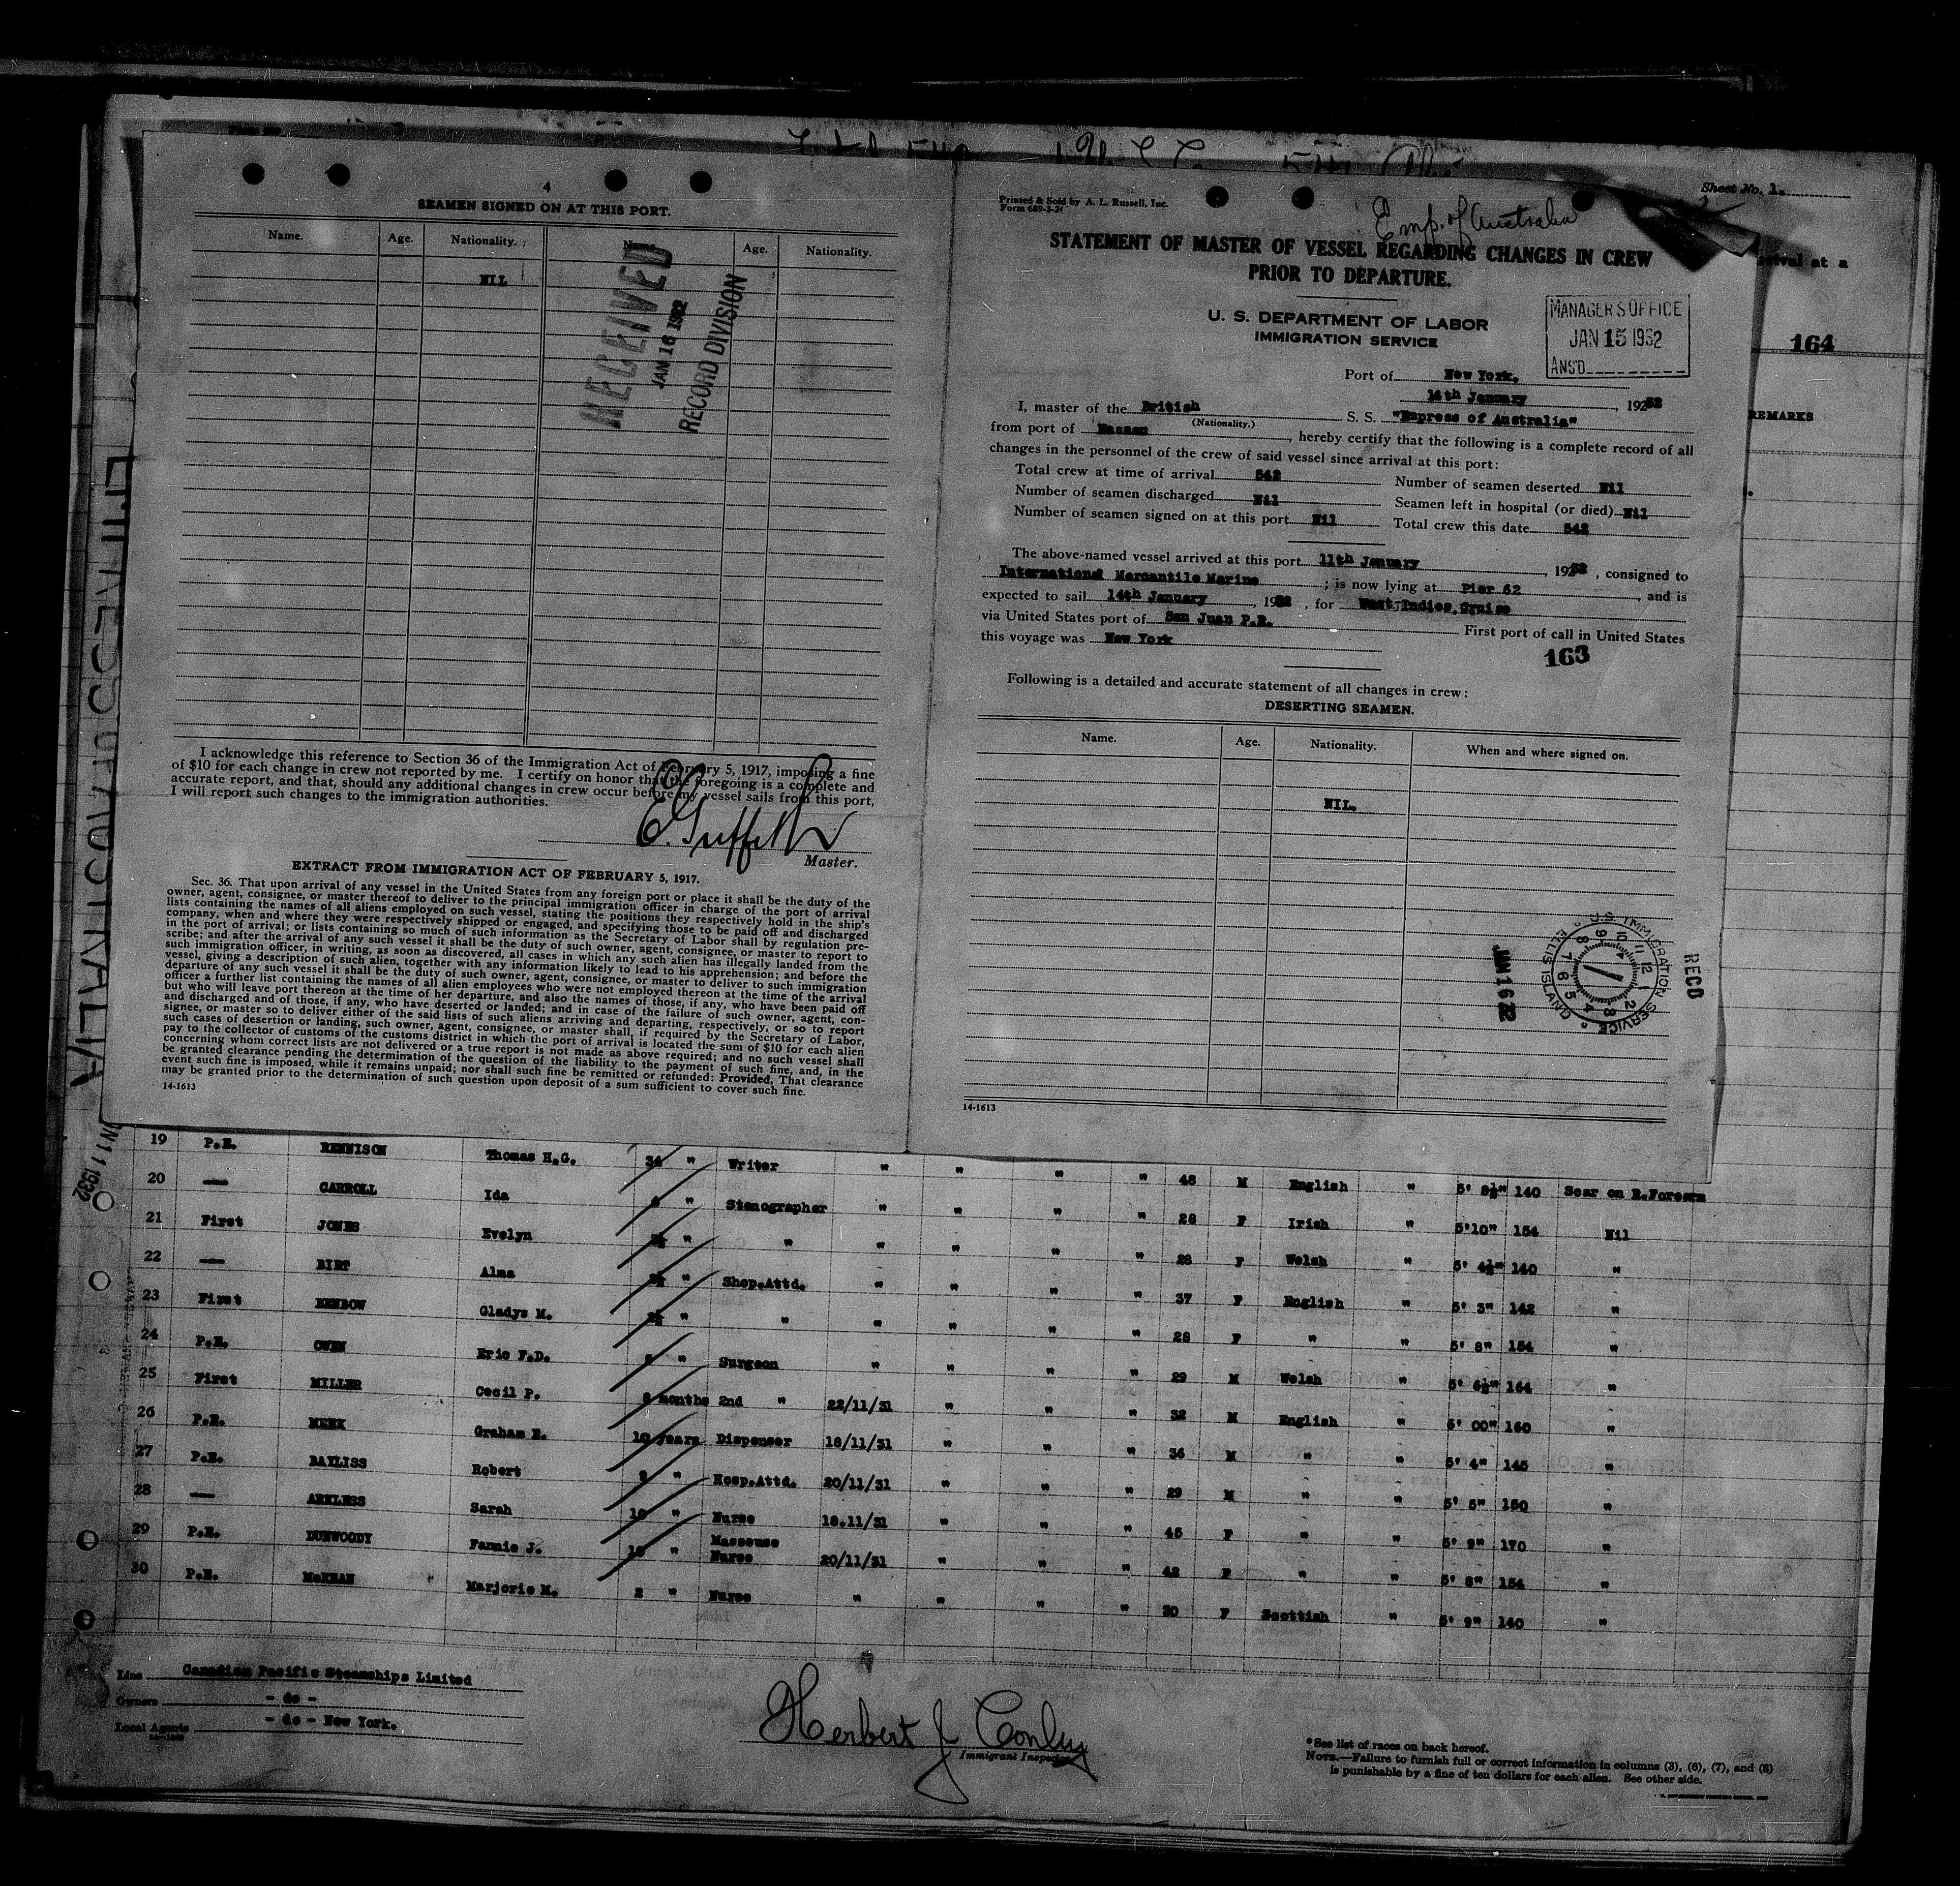 4
SEAMEN SIGNED ON AT THIS PORT.
Name. Age. Nationality. Name. Age. Nationality.
NIL
RECEIVED
JAN 16 1932
RECORD DIVISION
I acknowledge this reference to Section 36 of the Immigration Act of February 5, 1917, imposing a fine
of $10 for each change in crew not reported by me. I certify on honor that the foregoing is a complete and
accurate report, and that, should any additional changes in crew occur before my vessel sails from this port,
I will report such changes to the immigration authorities.
E. Griffith
Master.
EXTRACT FROM IMMIGRATION ACT OF FEBRUARY 5, 1917.
Sec. 36. That upon arrival of any vessel in the United States from any foreign port or place it shall be the duty of the
owner, agent, consignee, or master thereof to deliver to the principal immigration officer in charge of the port of arrival
lists containing the names of all aliens employed on such vessel, stating the positions they respectively hold in the ship's
company, when and where they were respectively shipped or engaged, and specifying those to be paid off and discharged
in the port of arrival; or lists containing so much of such information as the Secretary of Labor shall by regulation pre-
scribe; and after the arrival of any such vessel it shall be the duty of such owner, agent, consignee, or master to report to
such immigration officer, in writing, as soon as discovered, all cases in which any such alien has illegally landed from the
vessel, giving a description of such alien, together with any information likely to lead to his apprehension; and before the
departure of any such vessel it shall be the duty of such owner, agent, consignee, or master to deliver to such immigration
officer a further list containing the names of all alien employees who were not employed thereon at the time of the arrival
but who will leave port thereon at the time of her departure, and also the names of those, if any, who have been paid off
and discharged and of those, if any, who have deserted or landed; and in case of the failure of such owner, agent, con-
signee, or master so to deliver either of the said lists of such aliens arriving and departing, respectively, or so to report
such cases of desertion or landing, such owner, agent, consignee, or master shall, if required by the Secretary of Labor,
pay to the collector of customs of the customs district in which the port of arrival is located the sum of $10 for each alien
concerning whom correct lists are not delivered or a true report is not made as above required; and no such vessel shall
be granted clearance pending the determination of the question of the liability to the payment of such fine, and, in the
event such fine is imposed, while it remains unpaid; nor shall such fine be remitted or refunded: Provided, That clearance
may be granted prior to the determination of such question upon deposit of a sum sufficient to cover such fine.
14-1613
Printed & Sold by A. L. Russell, Inc.
Form 689-3-2
Emp. of Australia
STATEMENT OF MASTER OF VESSEL REGARDING CHANGES IN CREW
PRIOR TO DEPARTURE.
U. S. DEPARTMENT OF LABOR
IMMIGRATION SERVICE
MANAGER'S OFFICE
JAN 15 1932
ANS'D
Port of New York,
14th January, 1932
I, master of the British S. S. "Empress of Australia"
(Nationality.)
from port of Nassau, hereby certify that the following is a complete record of all
changes in the personnel of the crew of said vessel since arrival at this port:
Total crew at time of arrival 542 Number of seamen deserted Nil
Number of seamen discharged Nil Seamen left in hospital (or died) Nil
Number of seamen signed on at this port Nil Total crew this date 542
The above-named vessel arrived at this port 11th January, 1932, consigned to
International Mercantile Marine; is now lying at Pier 62, and is
expected to sail 14th January, 1932, for West Indies Cruise
via United States port of San Juan P.R. First port of call in United States
this voyage was New York
163
Following is a detailed and accurate statement of all changes in crew:
DESERTING SEAMEN.
Name. Age. Nationality. When and where signed on.
NIL.
JAN 16 32
U.S. IMMIGRATION SERVICE ELLIS ISLAND
REC'D
14-1613
Sheet No. 1.
rival at a
164
REMARKS
EMPRESS OF AUSTRALIA
JAN 11 1932
19 P.E. RENNISON Thomas H.G. 34 " Writer " " " " 48 M English " 5' 8½" 140 Scar on R.Forearm
20 — CARROLL Ida 4 " Stenographer " " " " 28 F Irish " 5'10" 154 Nil
21 First JONES Evelyn " " " " " " 28 F Welsh " 5' 4½" 140 "
22 — BIRT Alma " Shop.Attd. " " " " 37 F English " 5' 3" 142 "
23 First BENBOW Gladys M. " " " " " " 28 F " " 5' 8" 154 "
24 P.E. OWEN Eric F.D. " Surgeon " " " " 29 M Welsh " 5' 6½" 164 "
25 First MILLER Cecil P. months 2nd " 22/11/31 " " " 32 M English " 6' 00" 160 "
26 P.E. MEEK Graham E. 10 years Dispenser 18/11/31 " " " 36 M " " 5' 4" 145 "
27 P.E. BAYLISS Robert 9 " Hosp.Attd. 20/11/31 " " " 29 M " " 5' 5" 150 "
28 — ARKLESS Sarah 10 " Nurse 18.11/31 " " " 45 F " " 5' 9" 170 "
29 P.E. DUNWOODY Fannie J. " Masseuse Nurse 20/11/31 " " " 42 F " " 5' 8" 154 "
30 P.E. McKEAN Marjorie M. 2 " Nurse " " " " 30 F Scottish " 5' 9" 140 "
Line Canadian Pacific Steamships Limited
Owners - do -
Local Agents - do - New York.
Herbert J Conley
Immigrant Inspector
*See list of races on back hereof.
NOTE.—Failure to furnish full or correct information in columns (3), (6), (7), and (8)
is punishable by a fine of ten dollars for each alien. See other side.